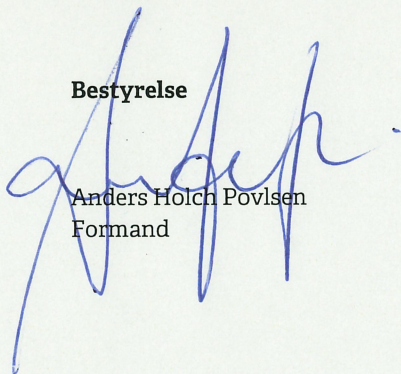 Bestyrelse
Anders Holch Povlsen
Formand